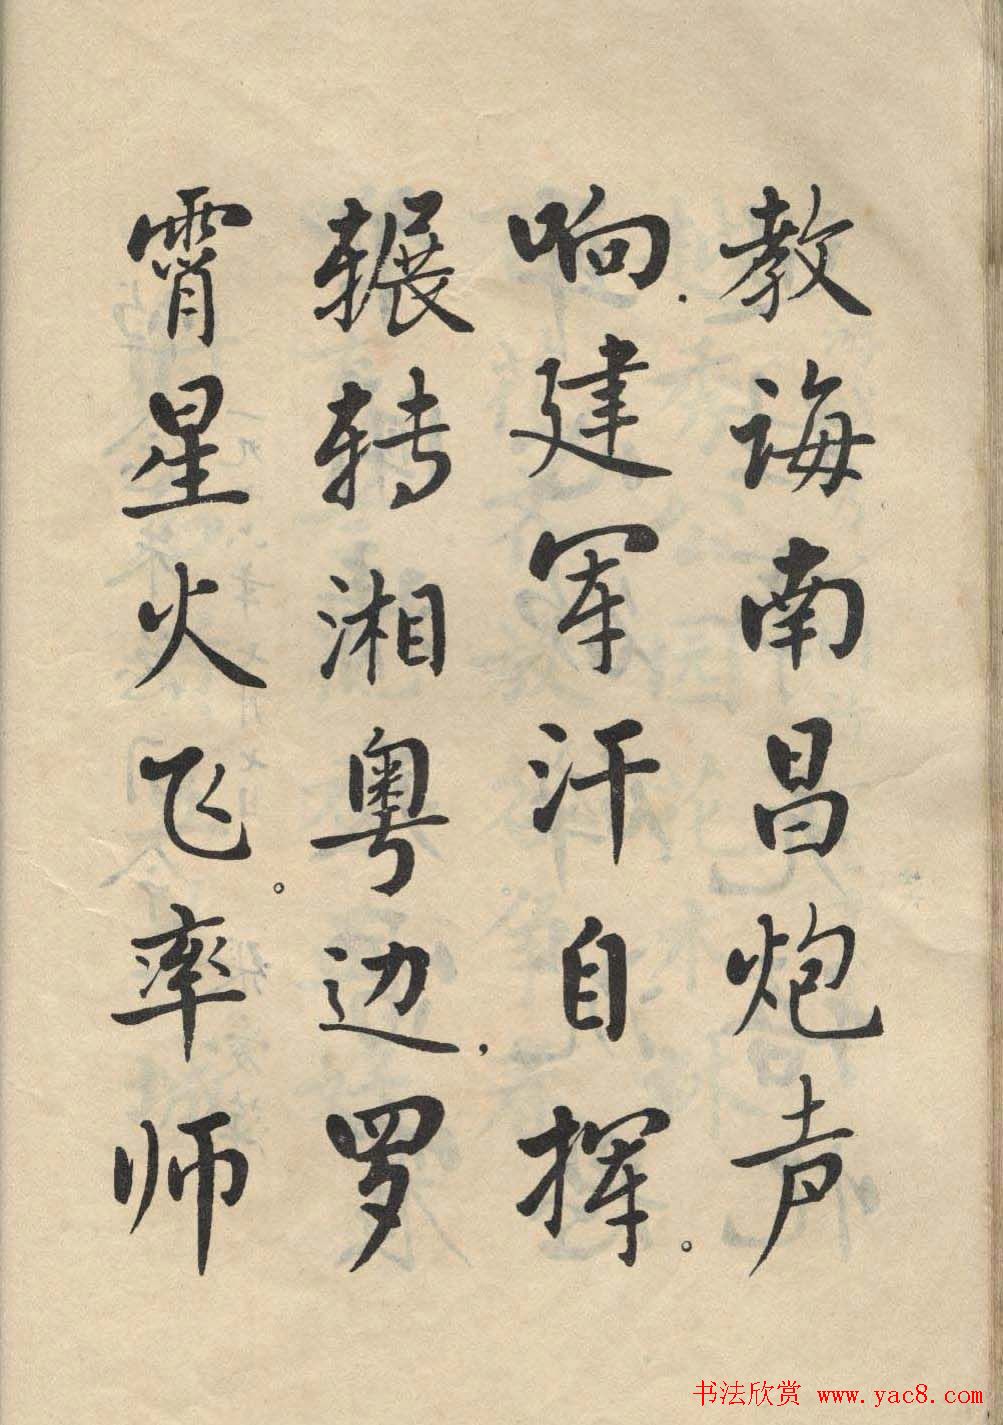 教诲南昌炮声
响，建军汗自挥。
辗转湘粤边，罗
霄星火飞。率师
书法欣赏 www.yac8.com